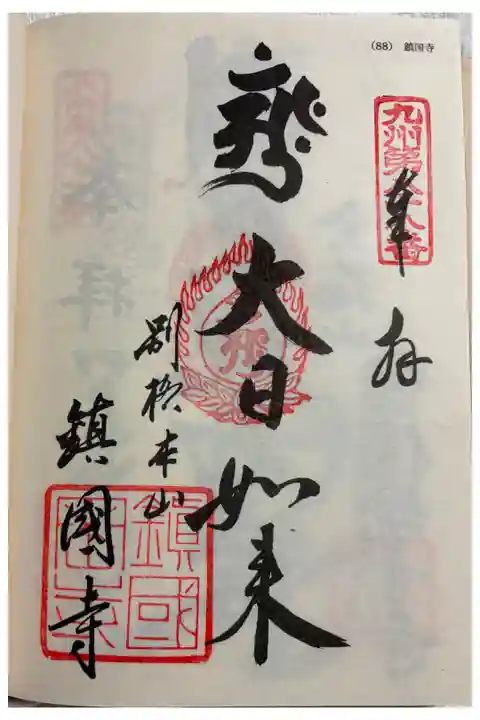 (88) 鎮国寺
九州第八十八番
奉拝
大日如来
別格本山
鎮國寺
鎮國國寺